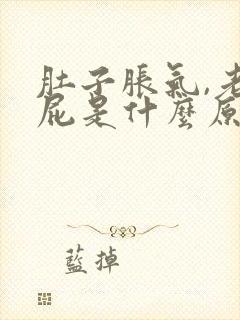 肚子脹氣,老
屁是什麼原
藍掉